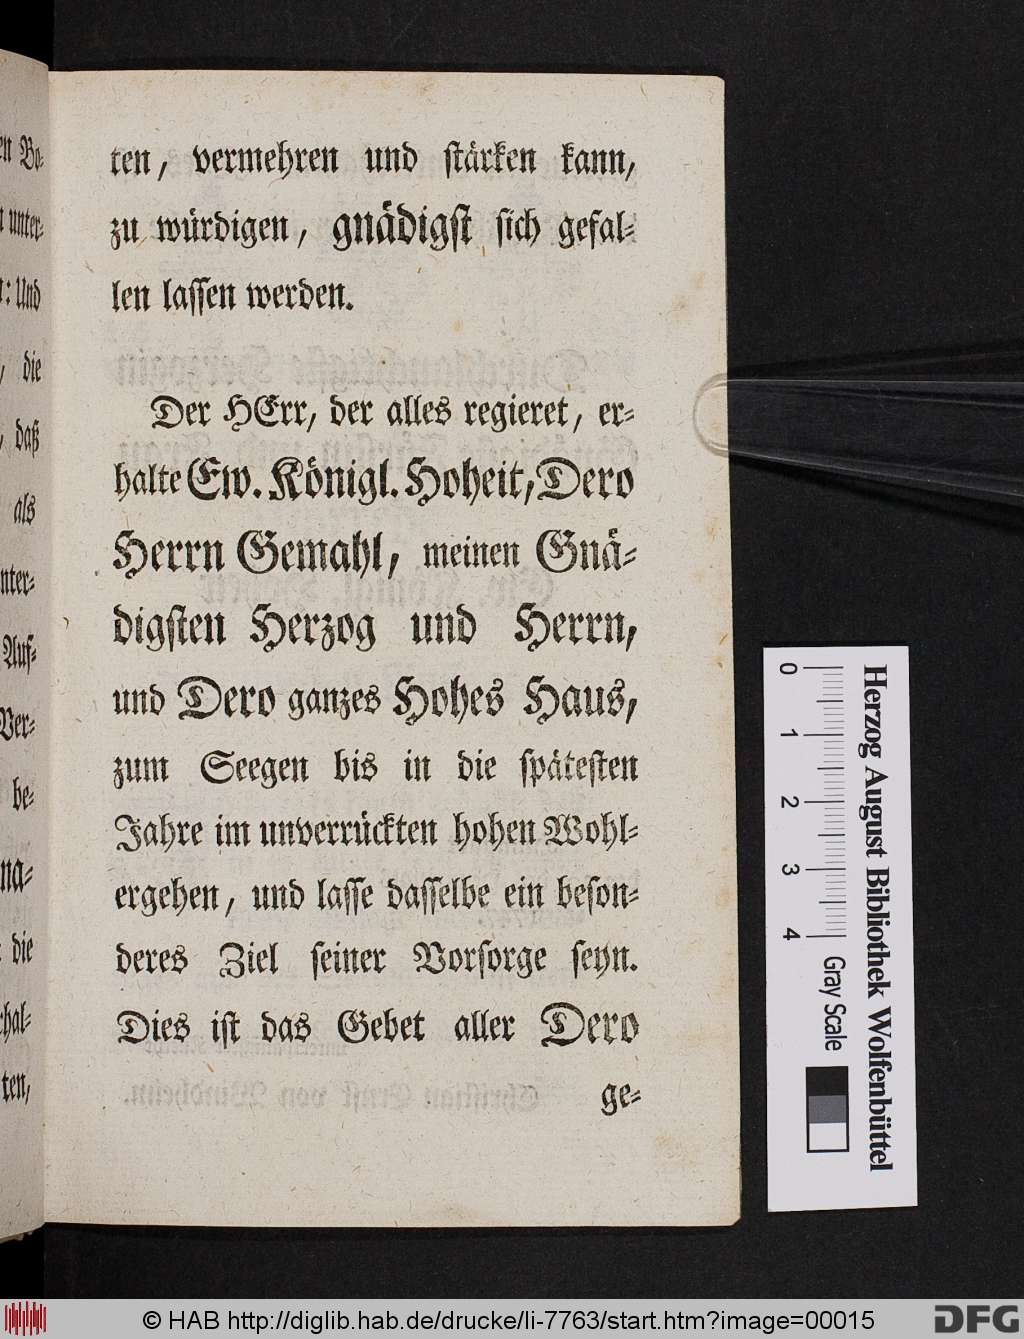 ten, vermehren und stärken kann,
zu würdigen, gnädigst sich gefal-
len lassen werden.
Der HErr, der alles regieret, er-
halte Ew. Königl. Hoheit, Dero
Herrn Gemahl, meinen Gnä-
digsten Herzog und Herrn,
und Dero ganzes Hohes Haus,
zum Seegen bis in die spätesten
Jahre im unverrückten hohen Wohl-
ergehen, und lasse dasselbe ein beson-
deres Ziel seiner Vorsorge seyn.
Dies ist das Gebet aller Dero
ge-
unter-
: Und
, die
, daß
als
Auf-
Ver-
be-
die
ten,
Herzog August Bibliothek Wolfenbüttel
0 1 2 3 4
Gray Scale
© HAB http://diglib.hab.de/drucke/li-7763/start.htm?image=00015
DFG